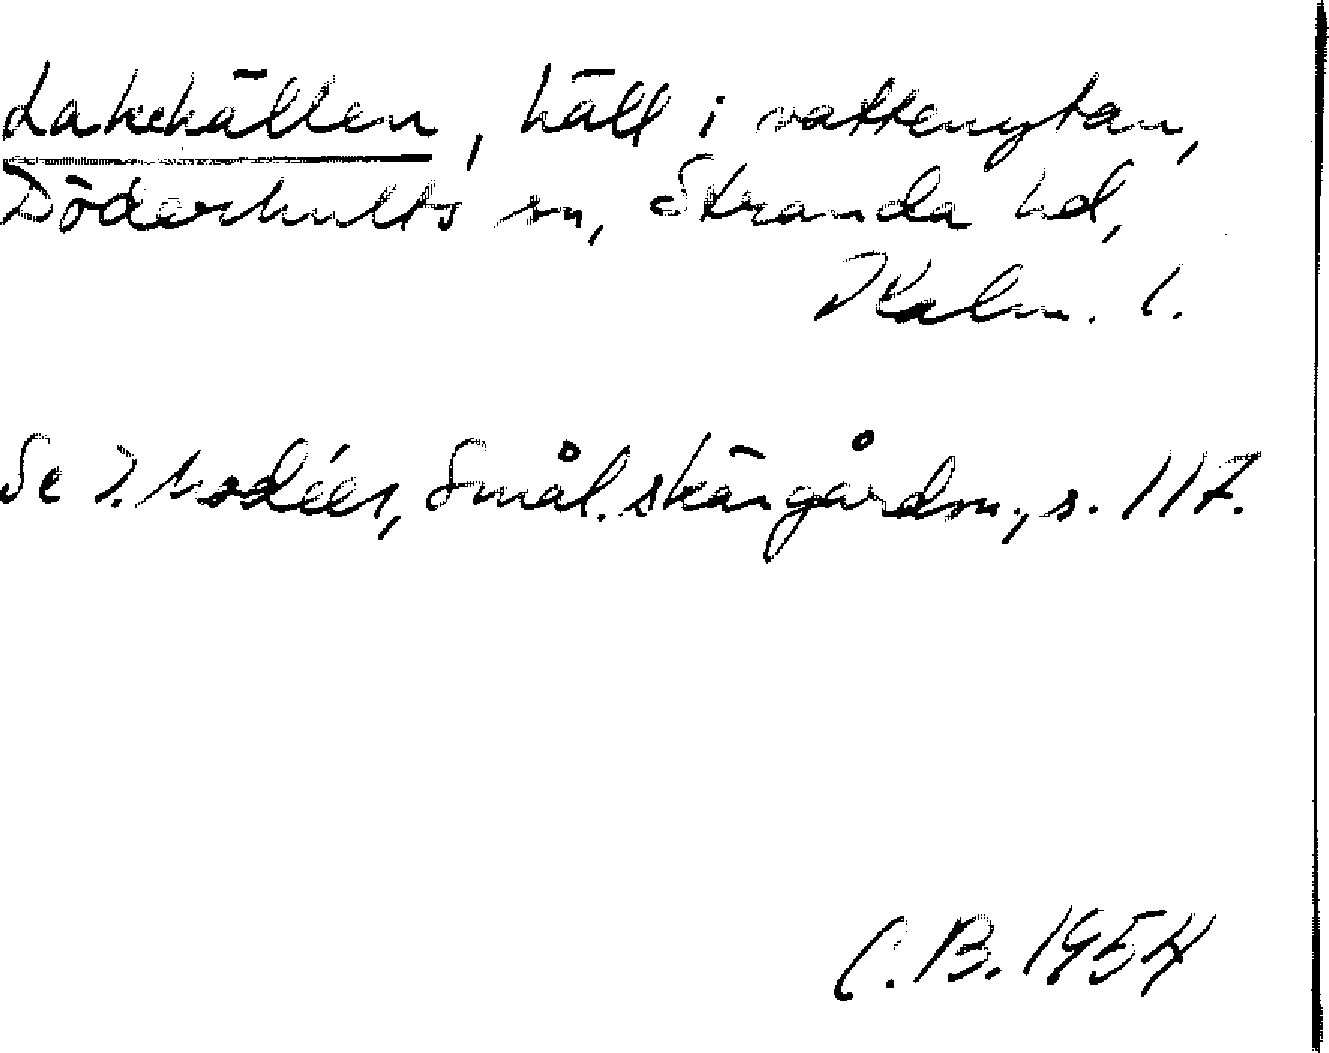 Lakehällen, häll i vattenytan,
Döderhults sn, Stranda hd,
Kalm. l.
Se I. Modéer, Smål. skärgårdsn., s. 117.
C. B. 1954